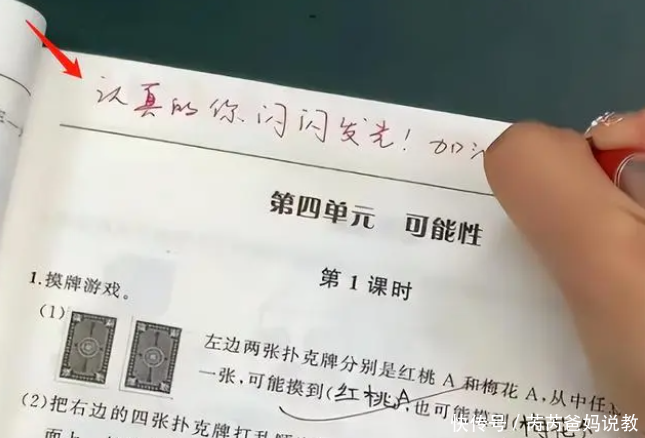 认真的你闪闪发光！加
第四单元 可能性
第1课时
1.摸牌游戏。
(1)
左边两张扑克牌分别是红桃A和梅花A,从中任
一张,可能摸到(红桃A),也可能
(2)把右边的四张扑克牌打乱顺
面上
快传号/芃芮爸妈说教